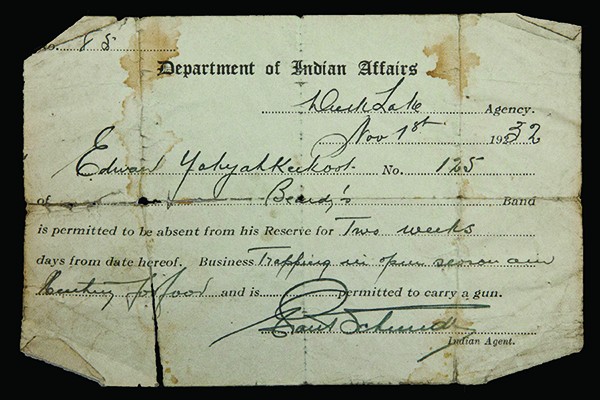 No. 85
Department of Indian Affairs
Duck Lake Agency.
Nov 1st 1932
Edward Yahyahkeekoot No. 125
of Beardy's Band
is permitted to be absent from his Reserve for Two weeks
days from date hereof. Business Trapping in open season and
Hunting for food and is permitted to carry a gun.
Indian Agent.